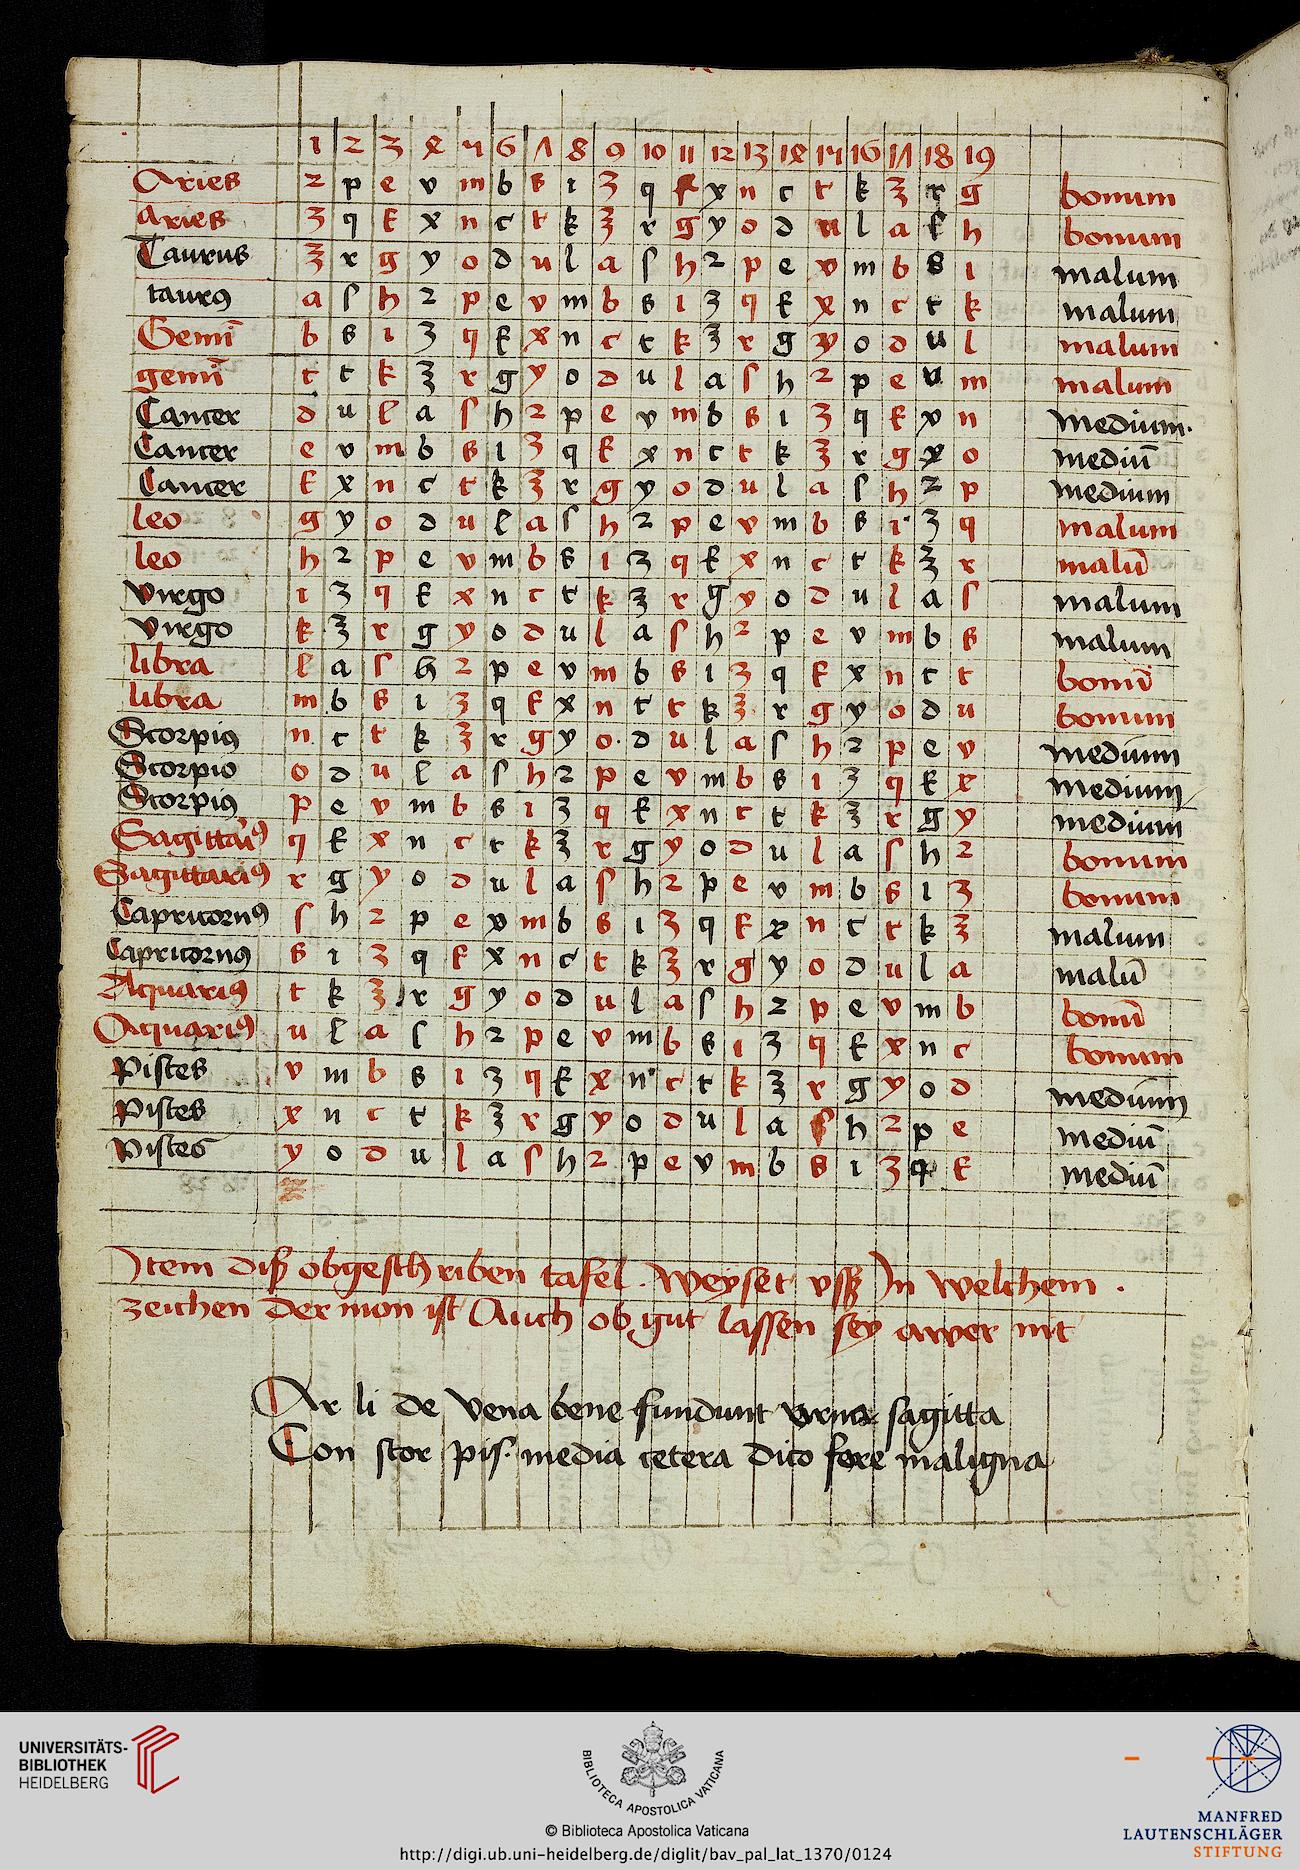 1 2 3 4 5 6 7 8 9 10 11 12 13 14 15 16 17 18 19
Aries 2 p e v m b s ı 3 q f x n c t k ʒ r g bonum
aries 3 q f x n c t k ʒ r g y o d u l a f h bonum
Taurus ʒ r g y o d u l a ſ h 2 p e v m b s ı malum
taurꝯ a ſ h 2 p e v m b s ı 3 q f x n c t k malum
Gemī b s ı 3 q f x n c t k ʒ r g y o d u l malum
gemī c t k ʒ r g y o d u l a ſ h 2 p e v m malum
Cancer d u l a ſ h 2 p e v m b s ı 3 q f x n medium.
Cancer e v m b s ı 3 q f x n c t k ʒ r g y o mediū
Cancer f x n c t k ʒ r g y o d u l a ſ h 2 p medium
leo g y o d u l a ſ h 2 p e v m b s ı 3 q malum
leo h 2 p e v m b s ı 3 q f x n c t k ʒ r malū
virgo ı 3 q f x n c t k ʒ r g y o d u l a ſ malum
virgo k ʒ r g y o d u l a ſ h 2 p e v m b s malum
libra l a ſ h 2 p e v m b s ı 3 q f x n c t bonū
libra m b s ı 3 q f x n c t k ʒ r g y o d u bonum
Scorpiꝯ n c t k ʒ r g y o d u l a ſ h 2 p e v medium
Scorpio o d u l a ſ h 2 p e v m b s ı 3 q f x medium
Scorpiꝯ p e v m b s ı 3 q f x n c t k ʒ r g y medium
Sagittariꝯ q f x n c t k ʒ r g y o d u l a ſ h 2 bonum
Sagittariꝯ r g y o d u l a ſ h 2 p e v m b s ı 3 bonum
Capricornꝯ ſ h 2 p e v m b s ı 3 q f x n c t k ʒ malum
Capricornꝯ s ı 3 q f x n c t k ʒ r g y o d u l a malū
Aquariꝯ t k ʒ r g y o d u l a ſ h 2 p e v m b bonū
Aquariꝯ u l a ſ h 2 p e v m b s ı 3 q f x n c bonum
Pisces v m b s ı 3 q f x n c t k ʒ r g y o d medium
Pisces x n c t k ʒ r g y o d u l a ſ h 2 p e mediū
Pisces y o d u l a ſ h 2 p e v m b s ı 3 q f mediū
Item diſß obgeschriben tafel. weyset vſß In welchem.
zeichen der mon ist Auch ob gut lassen sey awer nit
Ar li de vena bene fundunt urna sagitta
Con scor pis. media cetera dico fore maligna
UNIVERSITÄTS-
BIBLIOTHEK
HEIDELBERG
BIBLIOTECA APOSTOLICA VATICANA
© Biblioteca Apostolica Vaticana
http://digi.ub.uni-heidelberg.de/diglit/bav_pal_lat_1370/0124
MANFRED
LAUTENSCHLÄGER
STIFTUNG